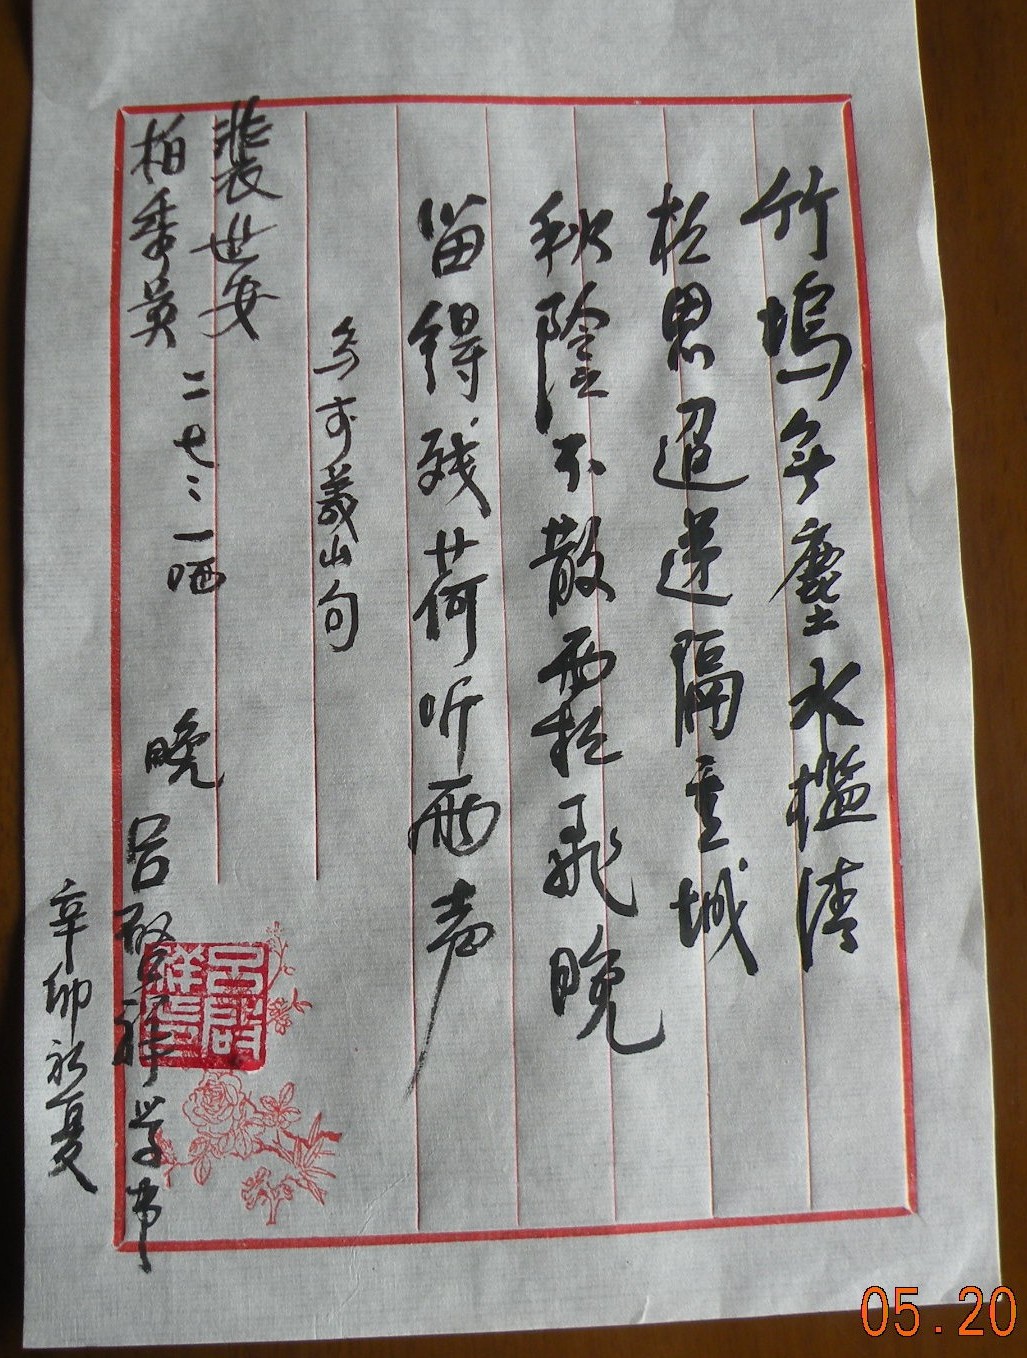 竹塢無塵水檻清
相思迢递隔重城
秋陰不散霜飛晚
留得残荷听雨声
義山句
裴世安
柏秀英
一哂
晚 吕啟祥学书
辛卯初夏
05.20